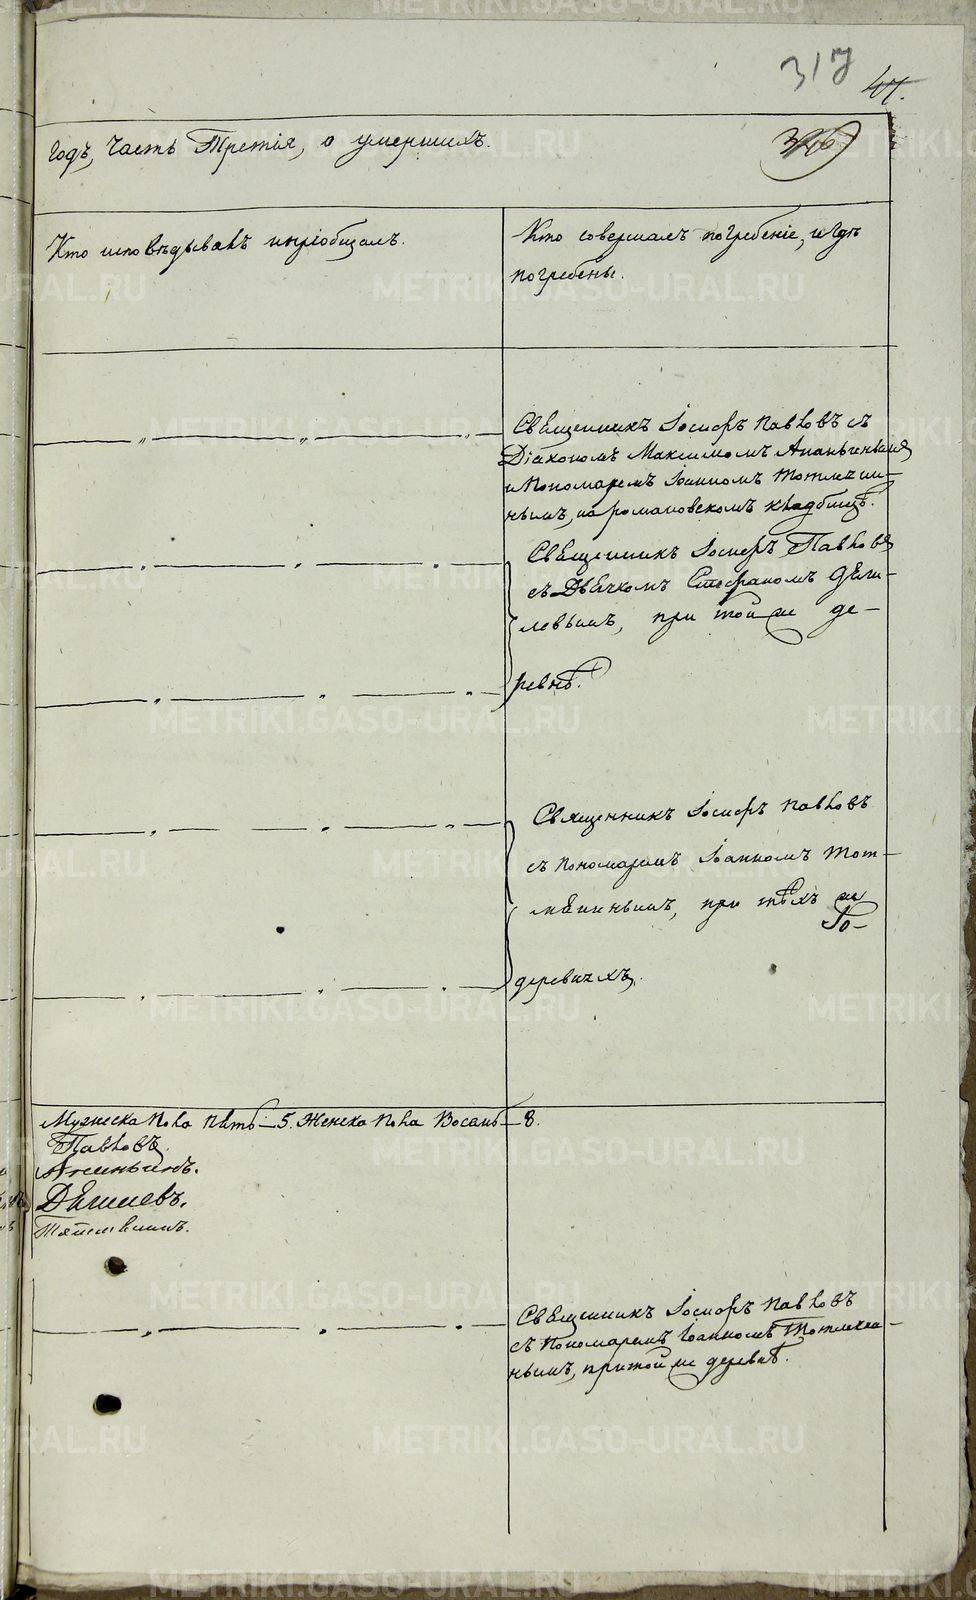 317
47.
годъ, Часть Третія, о умершихъ.
Кто исповѣдывалъ и пріобщалъ.
Кто совершалъ погребеніе, и гдѣ
погребены.
Священникъ Іосифъ Павловъ съ
Діакономъ Максимомъ Ананьинымъ
и Пономаремъ Іоанномъ
нымъ, на романовскомъ кладбищѣ.
Священникъ Іосифъ Павловъ
съ Дьячкомъ Стефаномъ
левымъ, при той же де-
ревнѣ.
Священникъ Іосифъ Павловъ
съ пономаремъ Іоанномъ Тот-
при тѣхъ же
деревняхъ.
Мужеска пола пять — 5. Женска пола Восемь — 8.
Павловъ.
Священникъ Іосифъ Павловъ
съ Пономаремъ Іоанномъ
нымъ, при той же деревнѣ.
METRIKI.GASO-URAL.RU